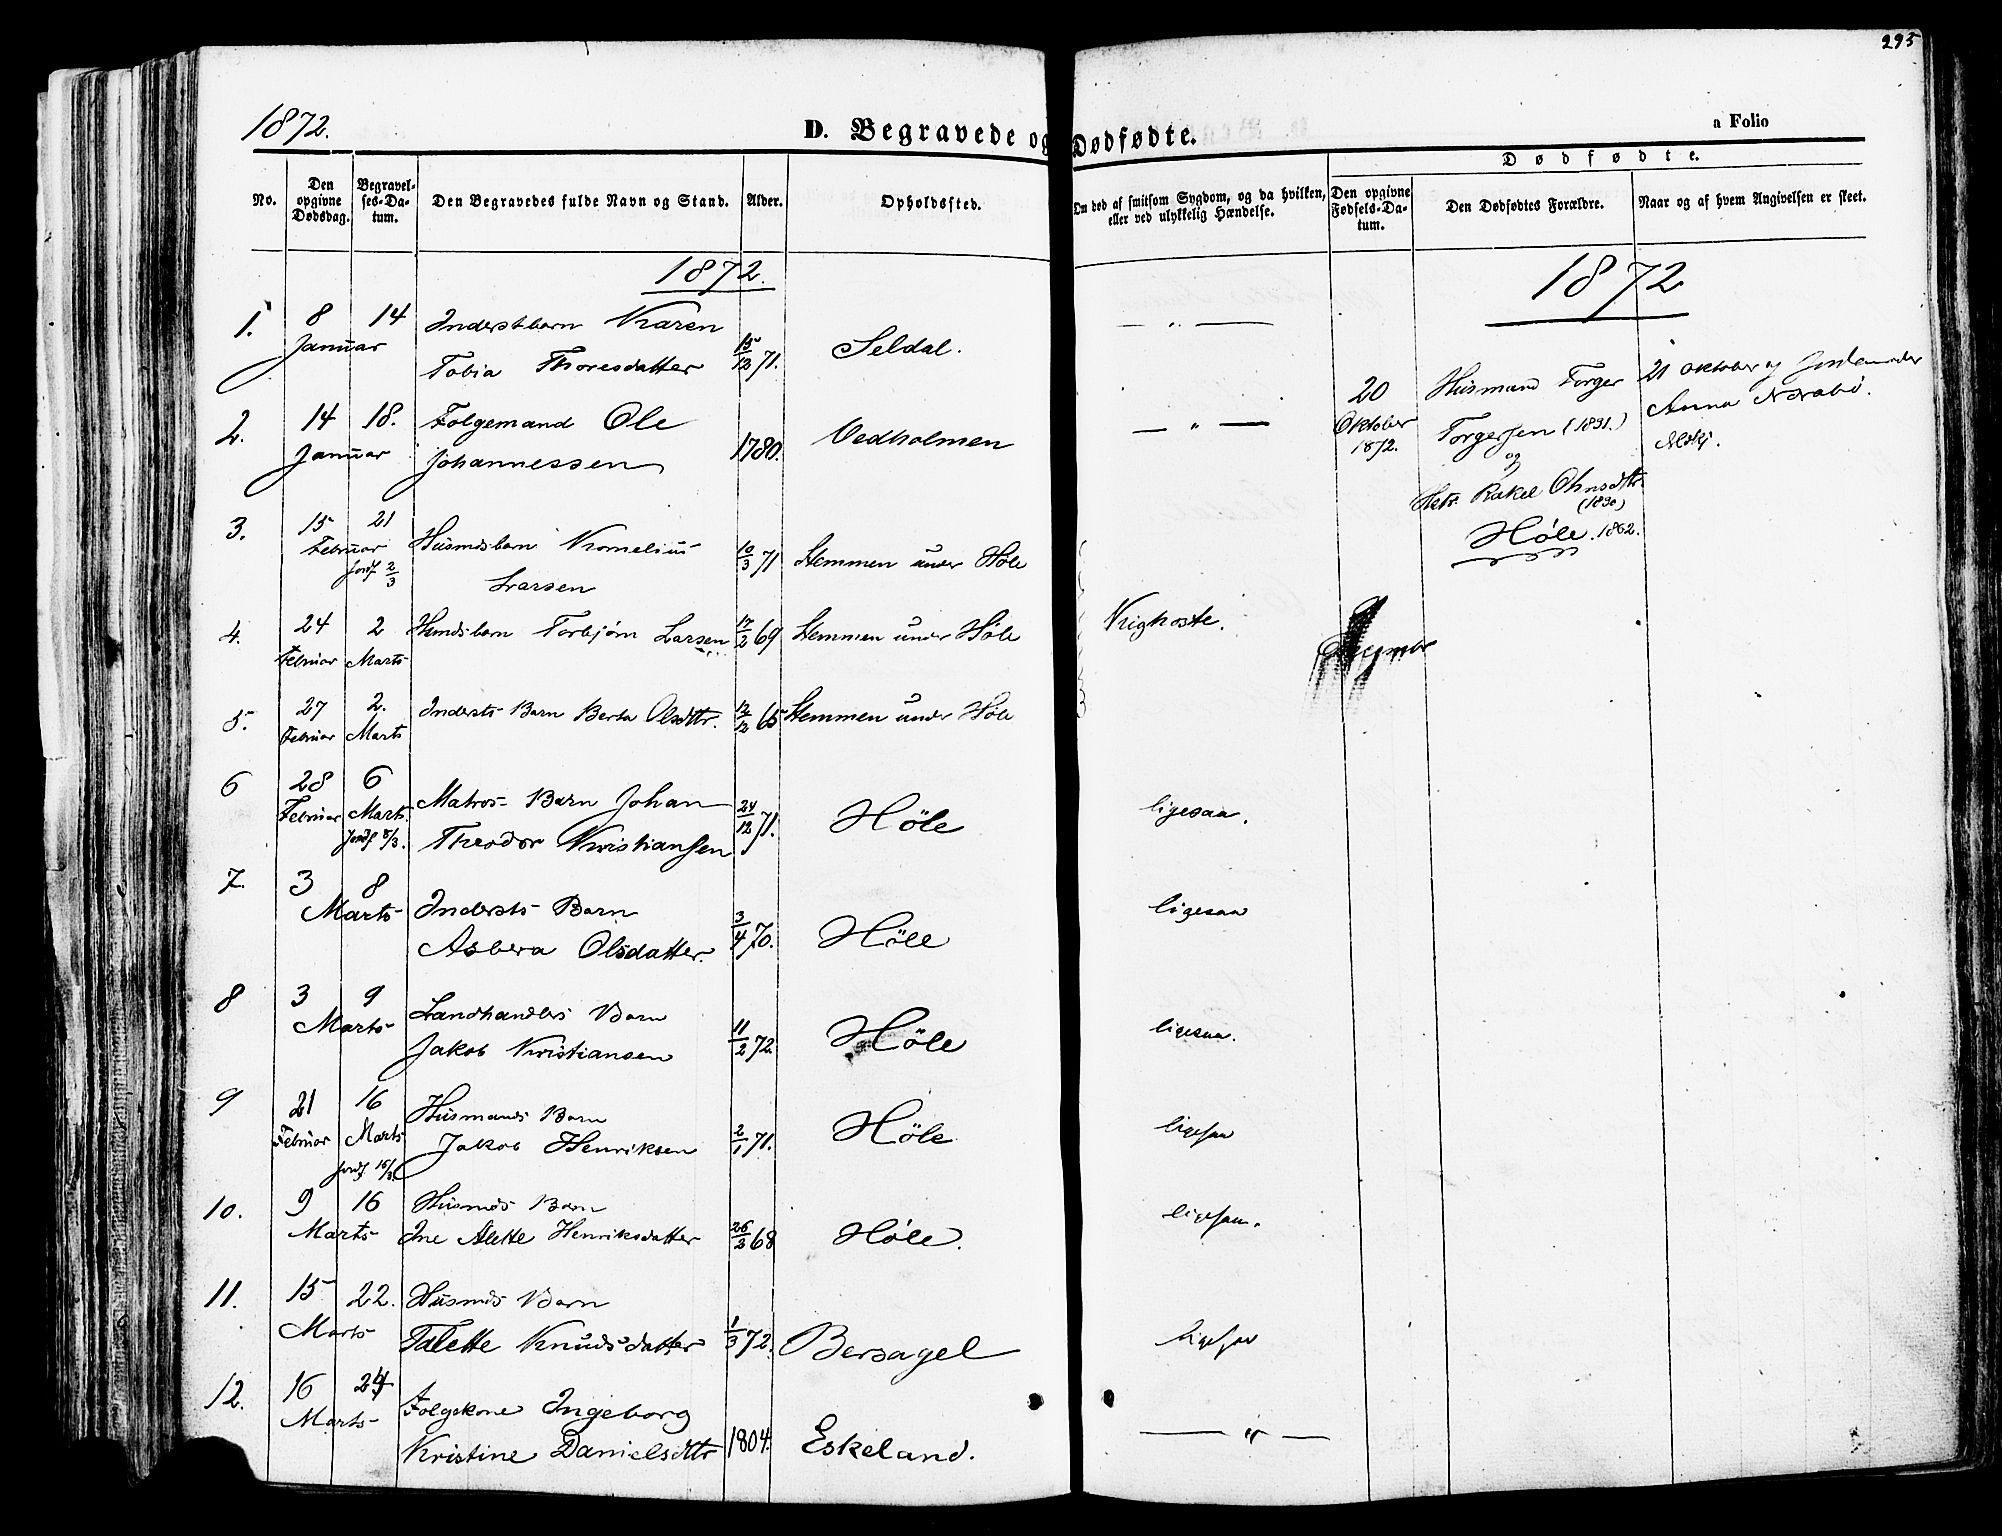 295
1872.
D. Begravede og Dødfødte.
a Folio
Dødfødte.
No.
Den opgivne Dødsdag.
Begravel-ses-Da-tum.
Den Begravedes fulde Navn og Stand.
Alder.
Opholdssted.
Om død af smitsom Sygdom, og da hvilken, eller ved ulykkelig Hændelse.
Den opgivne Fødsels-Da-tum.
Den Dødfødtes Forældre.
Naar og af hvem Angivelsen er skeet.
1872.
1872
1. 8 14 Inderstbarn Karen
Januar Tobia Thoresdatter 15/12 71. Seldal. — " —
2. 14 18. Folgemand Ole
Januar Johannessen 1780. Vedholmen — " —
3. 15 21 Husmdsbarn Kornelius
Februar Larsen 10/3 71 Stemmen under Høle
Jordf 2/3
4. 24 2 Husmdsbarn Torbjørn Larsen 17/2 69 Stemmen under Høle Kighoste.
Februar Marts
5. 27 2. Indersts Barn Berta Olsdttr. 12/12 65 Stemmen under Høle
Februar Marts
6 28 6 Matros- Barn Johan
Februar Marts. Theodor Kristiansen 24/12 71. Høle ligesaa.
Jordf 8/3.
7. 3 8 Indersts Barn
Marts Asbera Olsdatter. 3/4 70. Høle ligesaa
8 3 9 Landhandlers Barn
Marts Jakob Kristiansen 11/2 72. Høle ligesaa.
9 21 16 Husmands Barn
Februar Marts Jakob Henriksen 2/1 71. Høle ligesaa
Jordf 16/3.
10. 9 16 Husmds Barn
Marts Ine Alette Henriksdatter 26/2 68 Høle. ligesaa.
11. 15 22. Husmds Barn
Marts Talette Knudsdatter 1/3 72. Bersagel ligesaa
12. 16 24 Folgekone Ingeborg
Marts Kristine Danielsdttr 1804. Eskeland. — " —
20
Oktober
1872.
Husmand Torger
Torgersen (1831.)
og
Rakel Ohnsdttr.
(1830)
Høle. 1862.
21 Oktober af Jordemoder
Anna Nærabø.